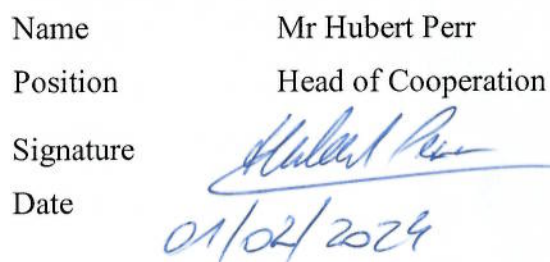 Name Mr Hubert Perr
Position Head of Cooperation
Signature Hubert Perr
Date 01/02/2024